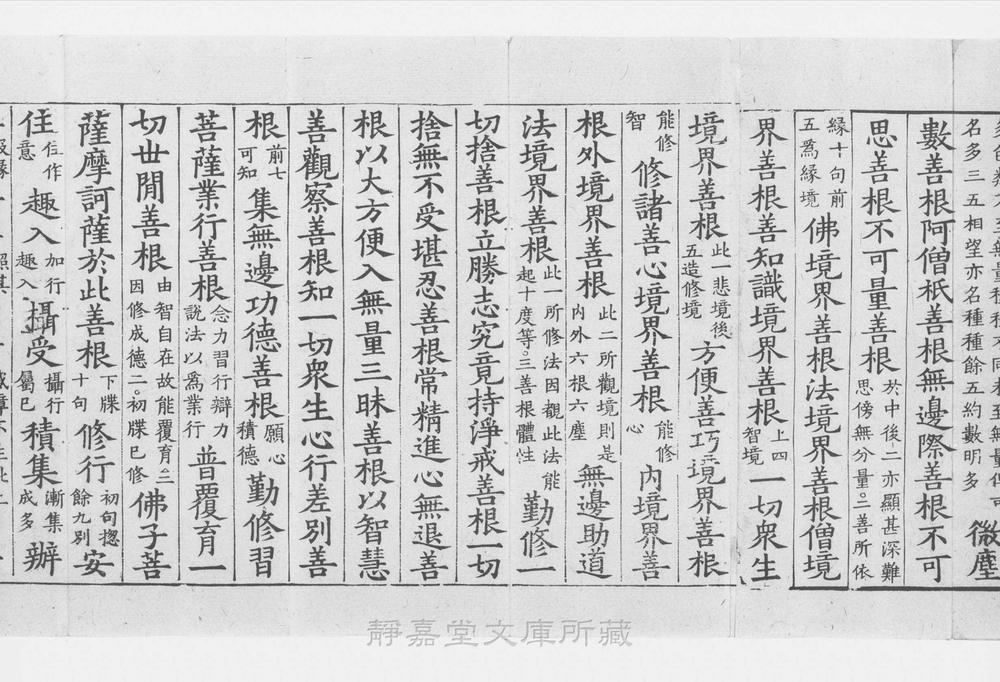 名多三五相望亦名種種餘五約數明多 微塵
數善根阿僧祇善根無邊際善根不可
思善根不可量善根 於中後二亦顯甚深難思傍無分量。二善所依
緣十句前五爲緣境 佛境界善根法境界善根僧境
界善根善知識境界善根 上四智境 一切衆生
境界善根 此一悲境後五造修境 方便善巧境界善根
能修智 修諸善心境界善根 能修心 內境界善
根外境界善根 此二所觀境則是內外六根六塵 無邊助道
法境界善根 此一所修法因觀此法能起十度等。三善根體性 勤修一
切捨善根立勝志究竟持淨戒善根一切
捨無不受堪忍善根常精進心無退善
根以大方便入無量三昧善根以智慧
善觀察善根知一切衆生心行差別善
根 前七可知 集無邊功德善根 願心積德 勤修習
菩薩業行善根 念力習行辯力說法以爲業行 普覆育一
切世間善根 由智自在故能覆育三因修成德二。初牒已修 佛子菩
薩摩訶薩於此善根 下牒十句 修行 初句揔餘九別 安
住 住作住意 趣入 加行趣入 攝受 攝行屬已 積集 漸集成多 辦
靜嘉堂文庫所藏